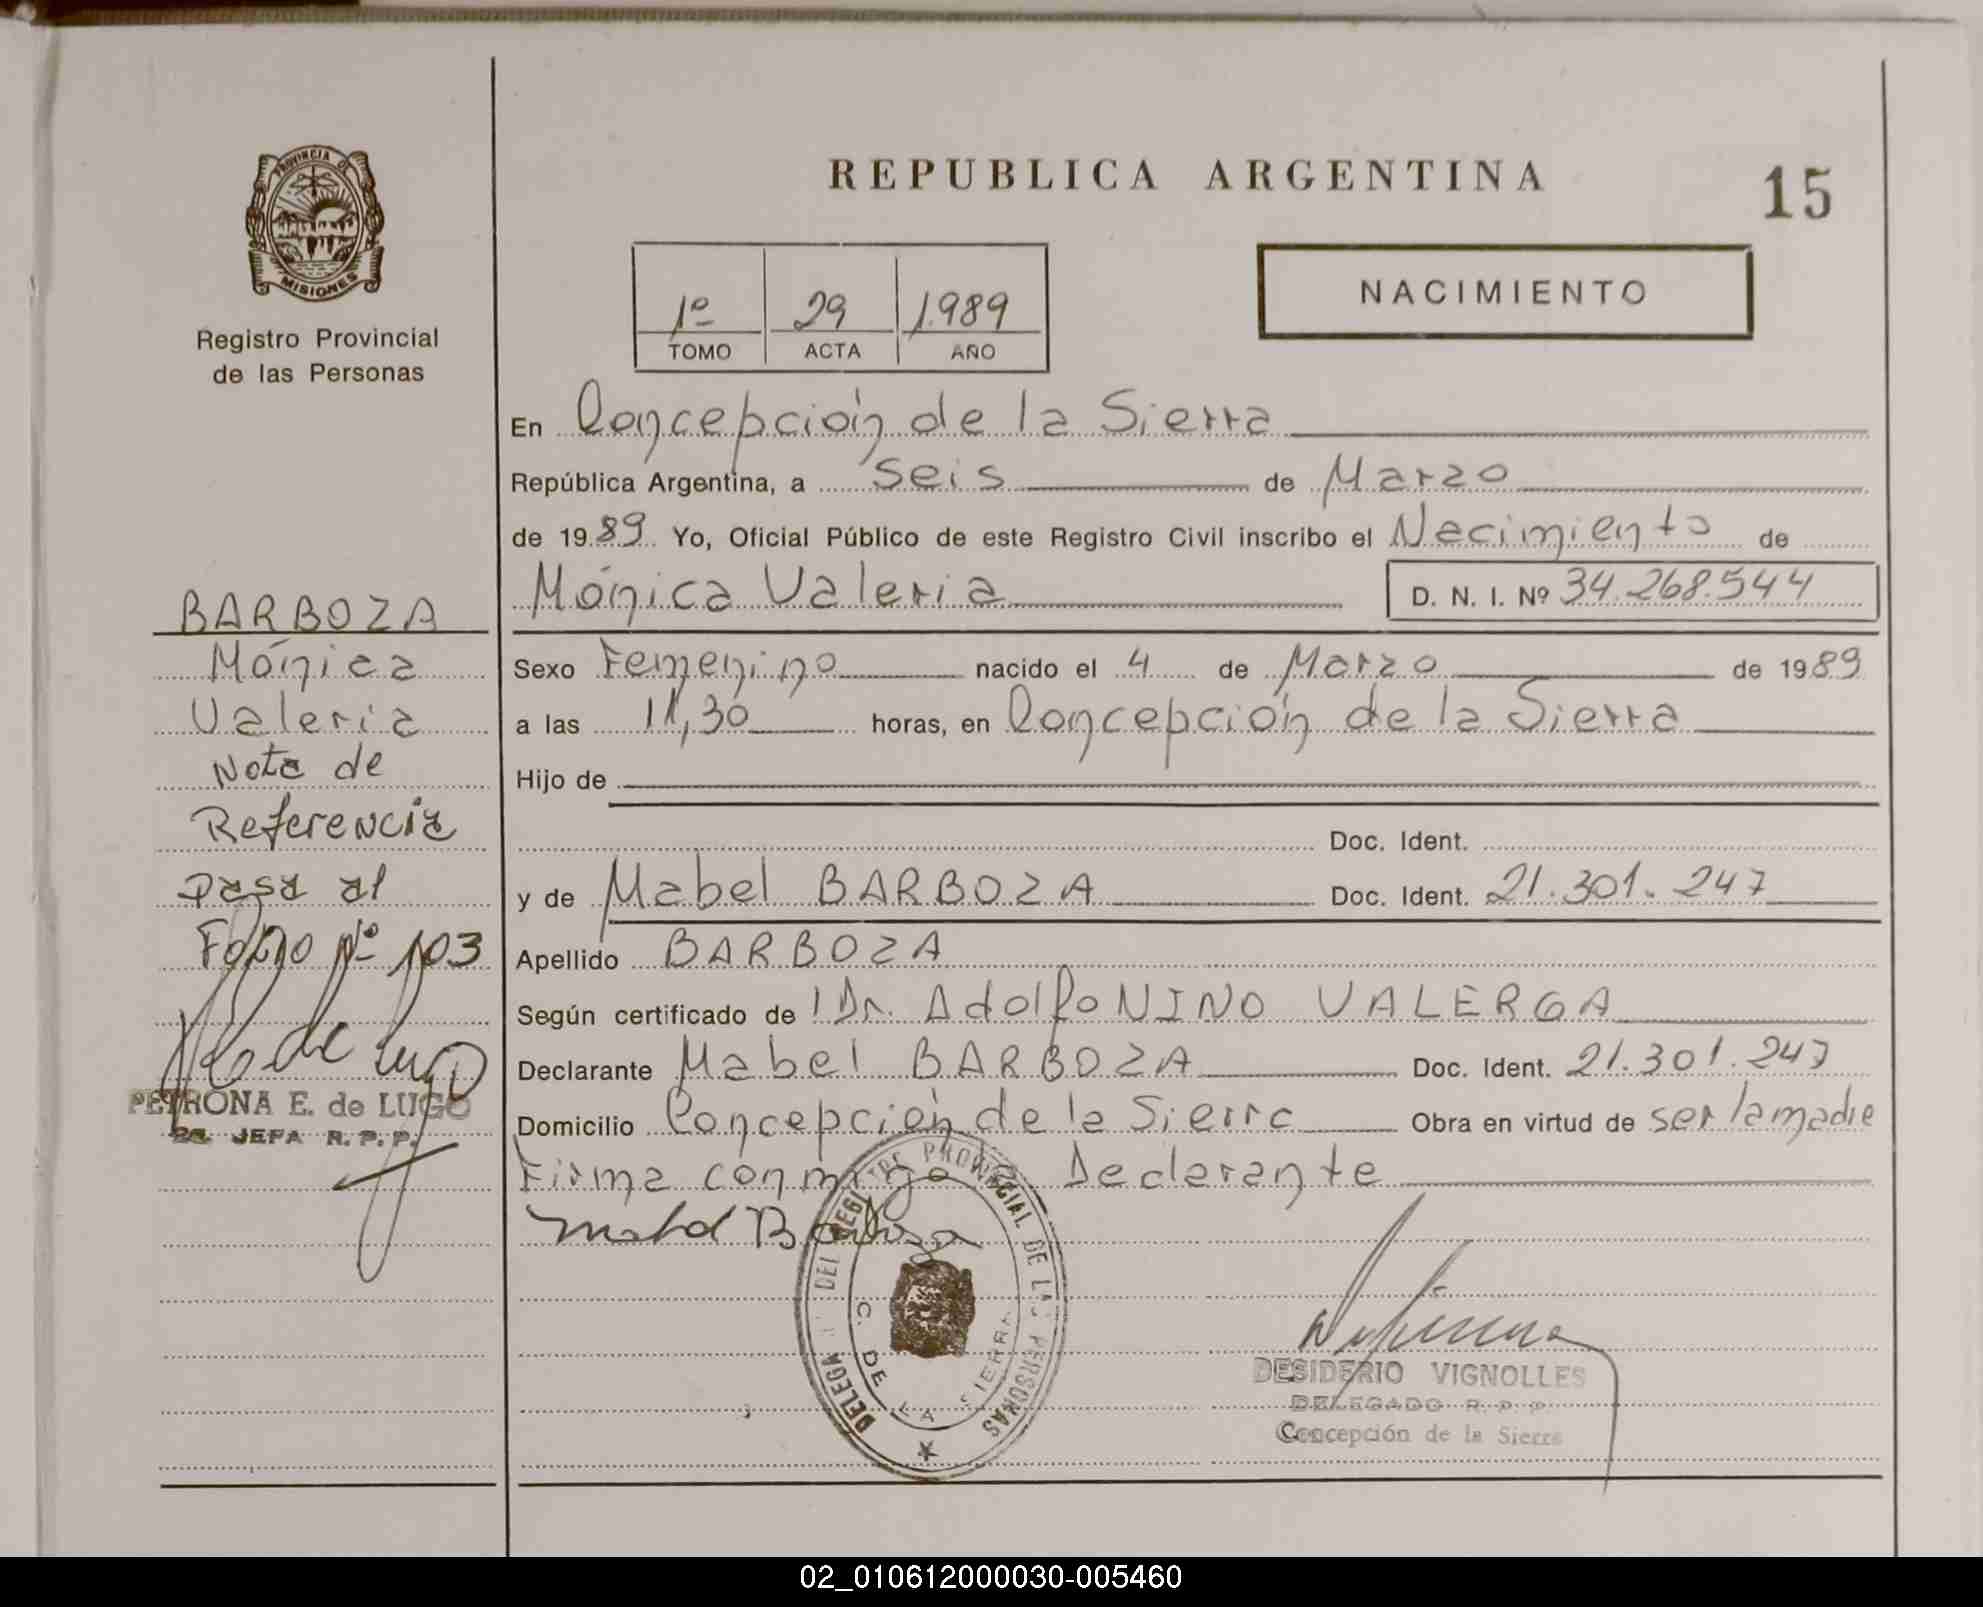 REPUBLICA ARGENTINA
15
PROVINCIA DE
MISIONES
Registro Provincial
de las Personas
1º 29 1.989
TOMO ACTA AÑO
NACIMIENTO
En Concepción de la Sierra
República Argentina, a seis de Marzo
de 1989 Yo, Oficial Público de este Registro Civil inscribo el Nacimiento de
Mónica Valeria D. N. I. Nº 34.268.544
Sexo Femenino nacido el 4 de Marzo de 1989
a las 11,30 horas, en Concepción de la Sierra
Hijo de
Doc. Ident.
y de Mabel BARBOZA Doc. Ident. 21.301.247
Apellido BARBOZA
Según certificado de Dr. Adolfo NINO VALERGA
Declarante Mabel BARBOZA Doc. Ident. 21.301.247
Domicilio Concepción de la Sierra Obra en virtud de ser la madre
Firma conmigo Declarante
Mabel Barboza
DELEGA DEL REGISTRO PROVINCIAL DE LAS PERSONAS
C. DE LA SIERRA
DESIDERIO VIGNOLLES
DELEGADO R. P. P.
Concepción de la Sierra
BARBOZA
Mónica
Valeria
Nota de
Referencia
Pasa al
Folio Nº 103
PETRONA E. de LUGO
2a. JEFA R. P. P.
02_010612000030-005460